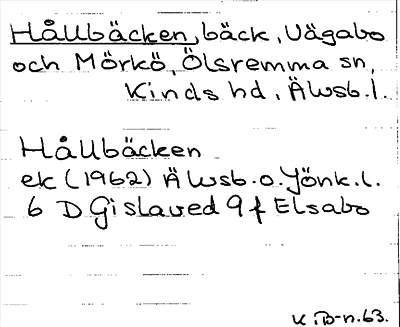 Hållbäcken, bäck, Vägabo
och Mörkö, Ölsremma sn,
Kinds hd, Älvsb. l.
Hållbäcken
ek (1962) Älvsb. o. Jönk. l.
6 D Gislaved 9 f Elsabo
K. B-n. 63.